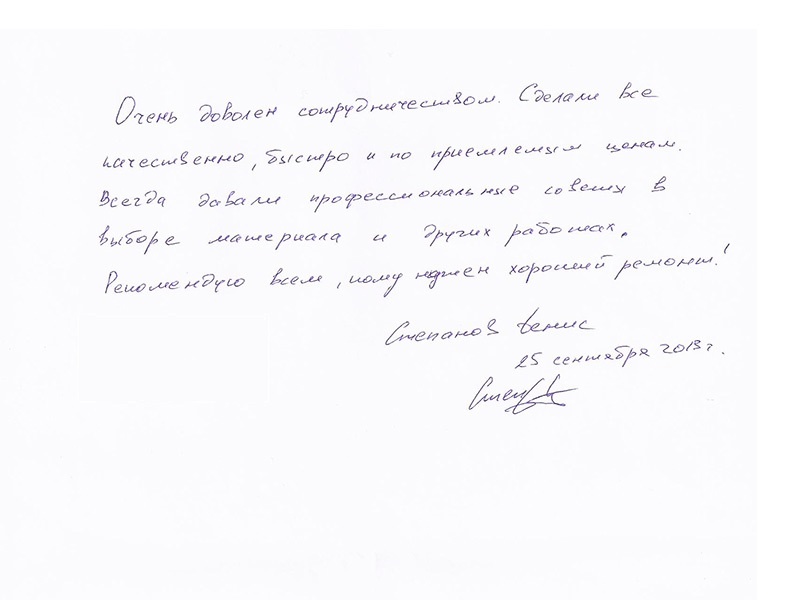 Очень доволен сотрудничеством. Сделали все
качественно, быстро и по приемлемым ценам.
Всегда давали профессиональные советы в
выборе материала и других работах.
Рекомендую всем, кому нужен хороший ремонт!
Степанов Денис
25 сентября 2013 г.